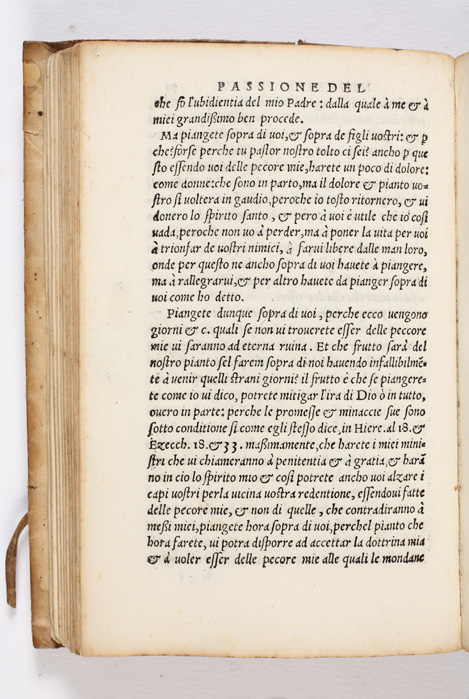 PASSIONE DEL
che fo l'ubidientia del mio Padre: dalla quale à me & à
miei grandißimo ben procede.
Ma piangete sopra di uoi, & sopra de figli uostri: & p
che? forse perche tu pastor nostro tolto ci sei? ancho p que
sto essendo uoi delle pecore mie, harete un poco di dolore:
come donne: che sono in parto, ma il dolore & pianto uo-
stro si voltera in gaudio, peroche io tosto ritornero, & ui
donero lo spirito santo, & pero à uoi è utile che io cosi
uada, peroche non uo à perder, ma à poner la uita per uoi
à trionfar de uostri nimici, à farui libere dalle man loro,
onde per questo ne ancho sopra di uoi hauete à piangere,
ma à rallegrarui, & per altro hauete da pianger sopra di
uoi come ho detto.
Piangete dunque sopra di uoi, perche ecco uengono
giorni & c. quali se non ui trouerete esser delle pecore
mie ui saranno ad eterna ruina. Et che frutto sarà del
nostro pianto sel farem sopra di noi hauendo infallibilmē-
te à uenir quelli strani giorni? il frutto è che se piangere-
te come io ui dico, potrete mitigar l'ira di Dio ò in tutto,
ouero in parte: perche le promesse & minaccie sue sono
sotto conditione si come egli stesso dice, in Hiere. al 18. &
Ezecch. 18. & 33. maßimamente, che harete i miei mini-
stri che ui chiameranno à penitentia & à gratia, & harā
no in cio lo spirito mio & così potrete ancho uoi alzare i
capi uostri per la uicina uostra redentione, essendoui fatte
delle pecore mie, & non di quelle, che contradiranno à
meßi miei, piangete hora sopra di uoi, perchel pianto che
hora farete, ui potra disporre ad accettar la dottrina mia
& à uoler esser delle pecore mie alle quali le mondane